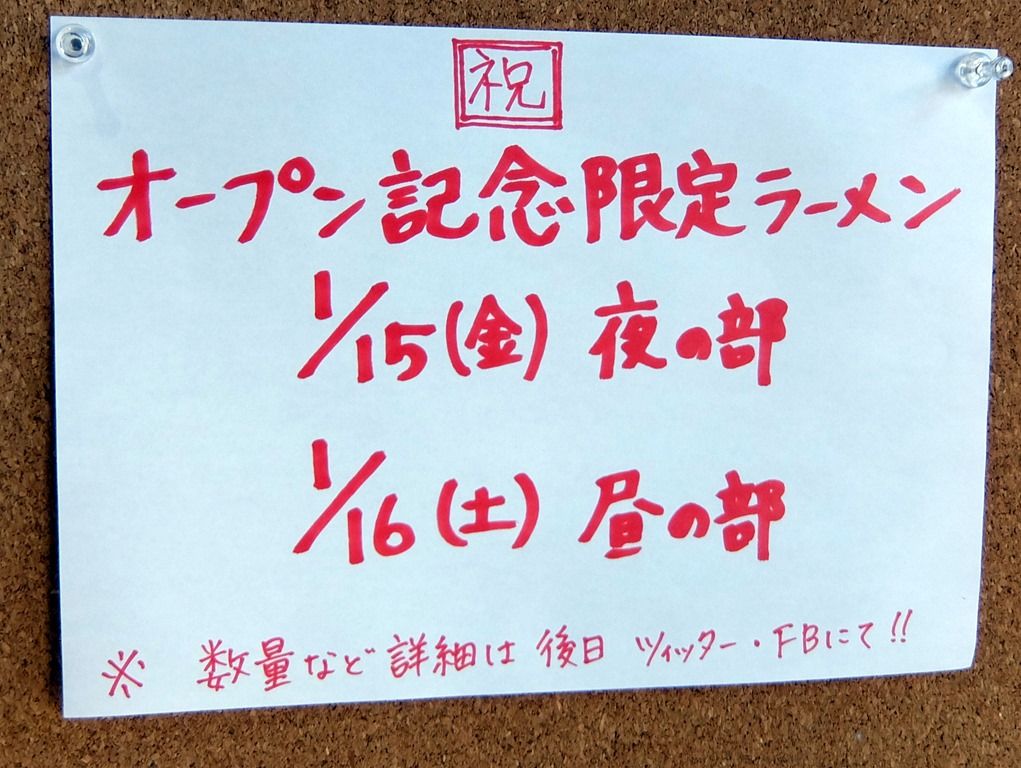 祝
オープン記念限定ラーメン
1/15(金) 夜の部
1/16(土) 昼の部
※ 数量など詳細は後日 ツィッター・FBにて!!